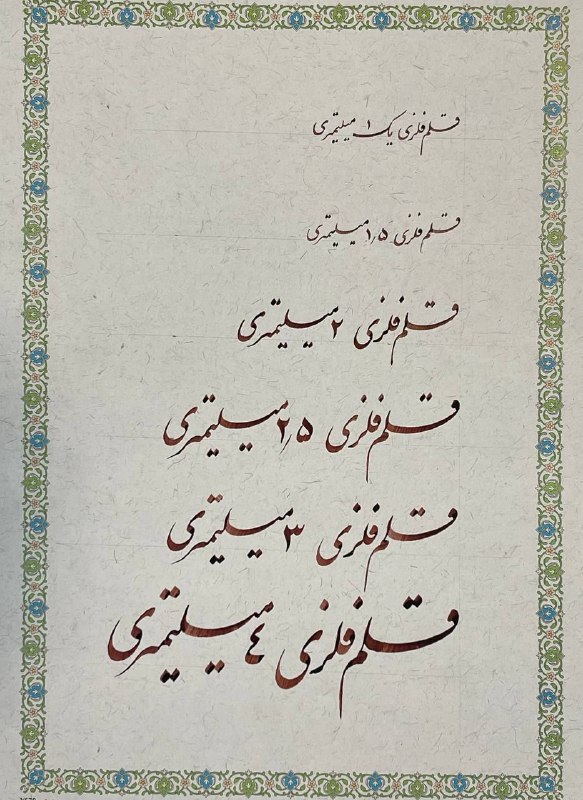 قلم فلزی یک ۱ میلیمتری
قلم فلزی ۱٫۵ میلیمتری
قلم فلزی ۲ میلیمتری
قلم فلزی ۲٫۵ میلیمتری
قلم فلزی ۳ میلیمتری
قلم فلزی ٤ میلیمتری